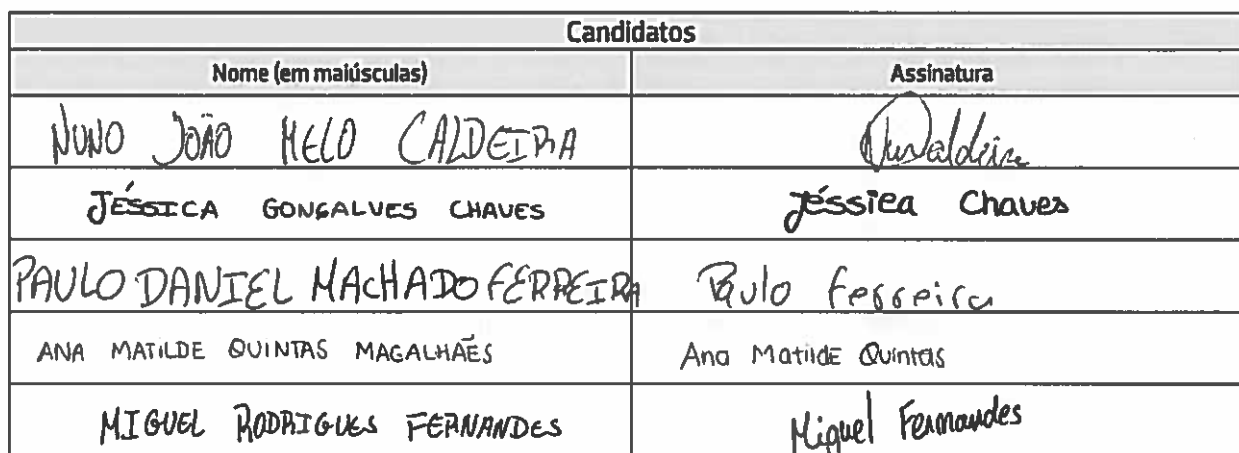 Candidatos
Nome (em maiúsculas) Assinatura
NUNO JOÃO MELO CALDEIRA
JÉSSICA GONÇALVES CHAVES Jéssica Chaves
PAULO DANIEL MACHADO FERREIRA Paulo Ferreira
ANA MATILDE QUINTAS MAGALHÃES Ana Matilde Quintas
MIGUEL RODRIGUES FERNANDES Miguel Fernandes